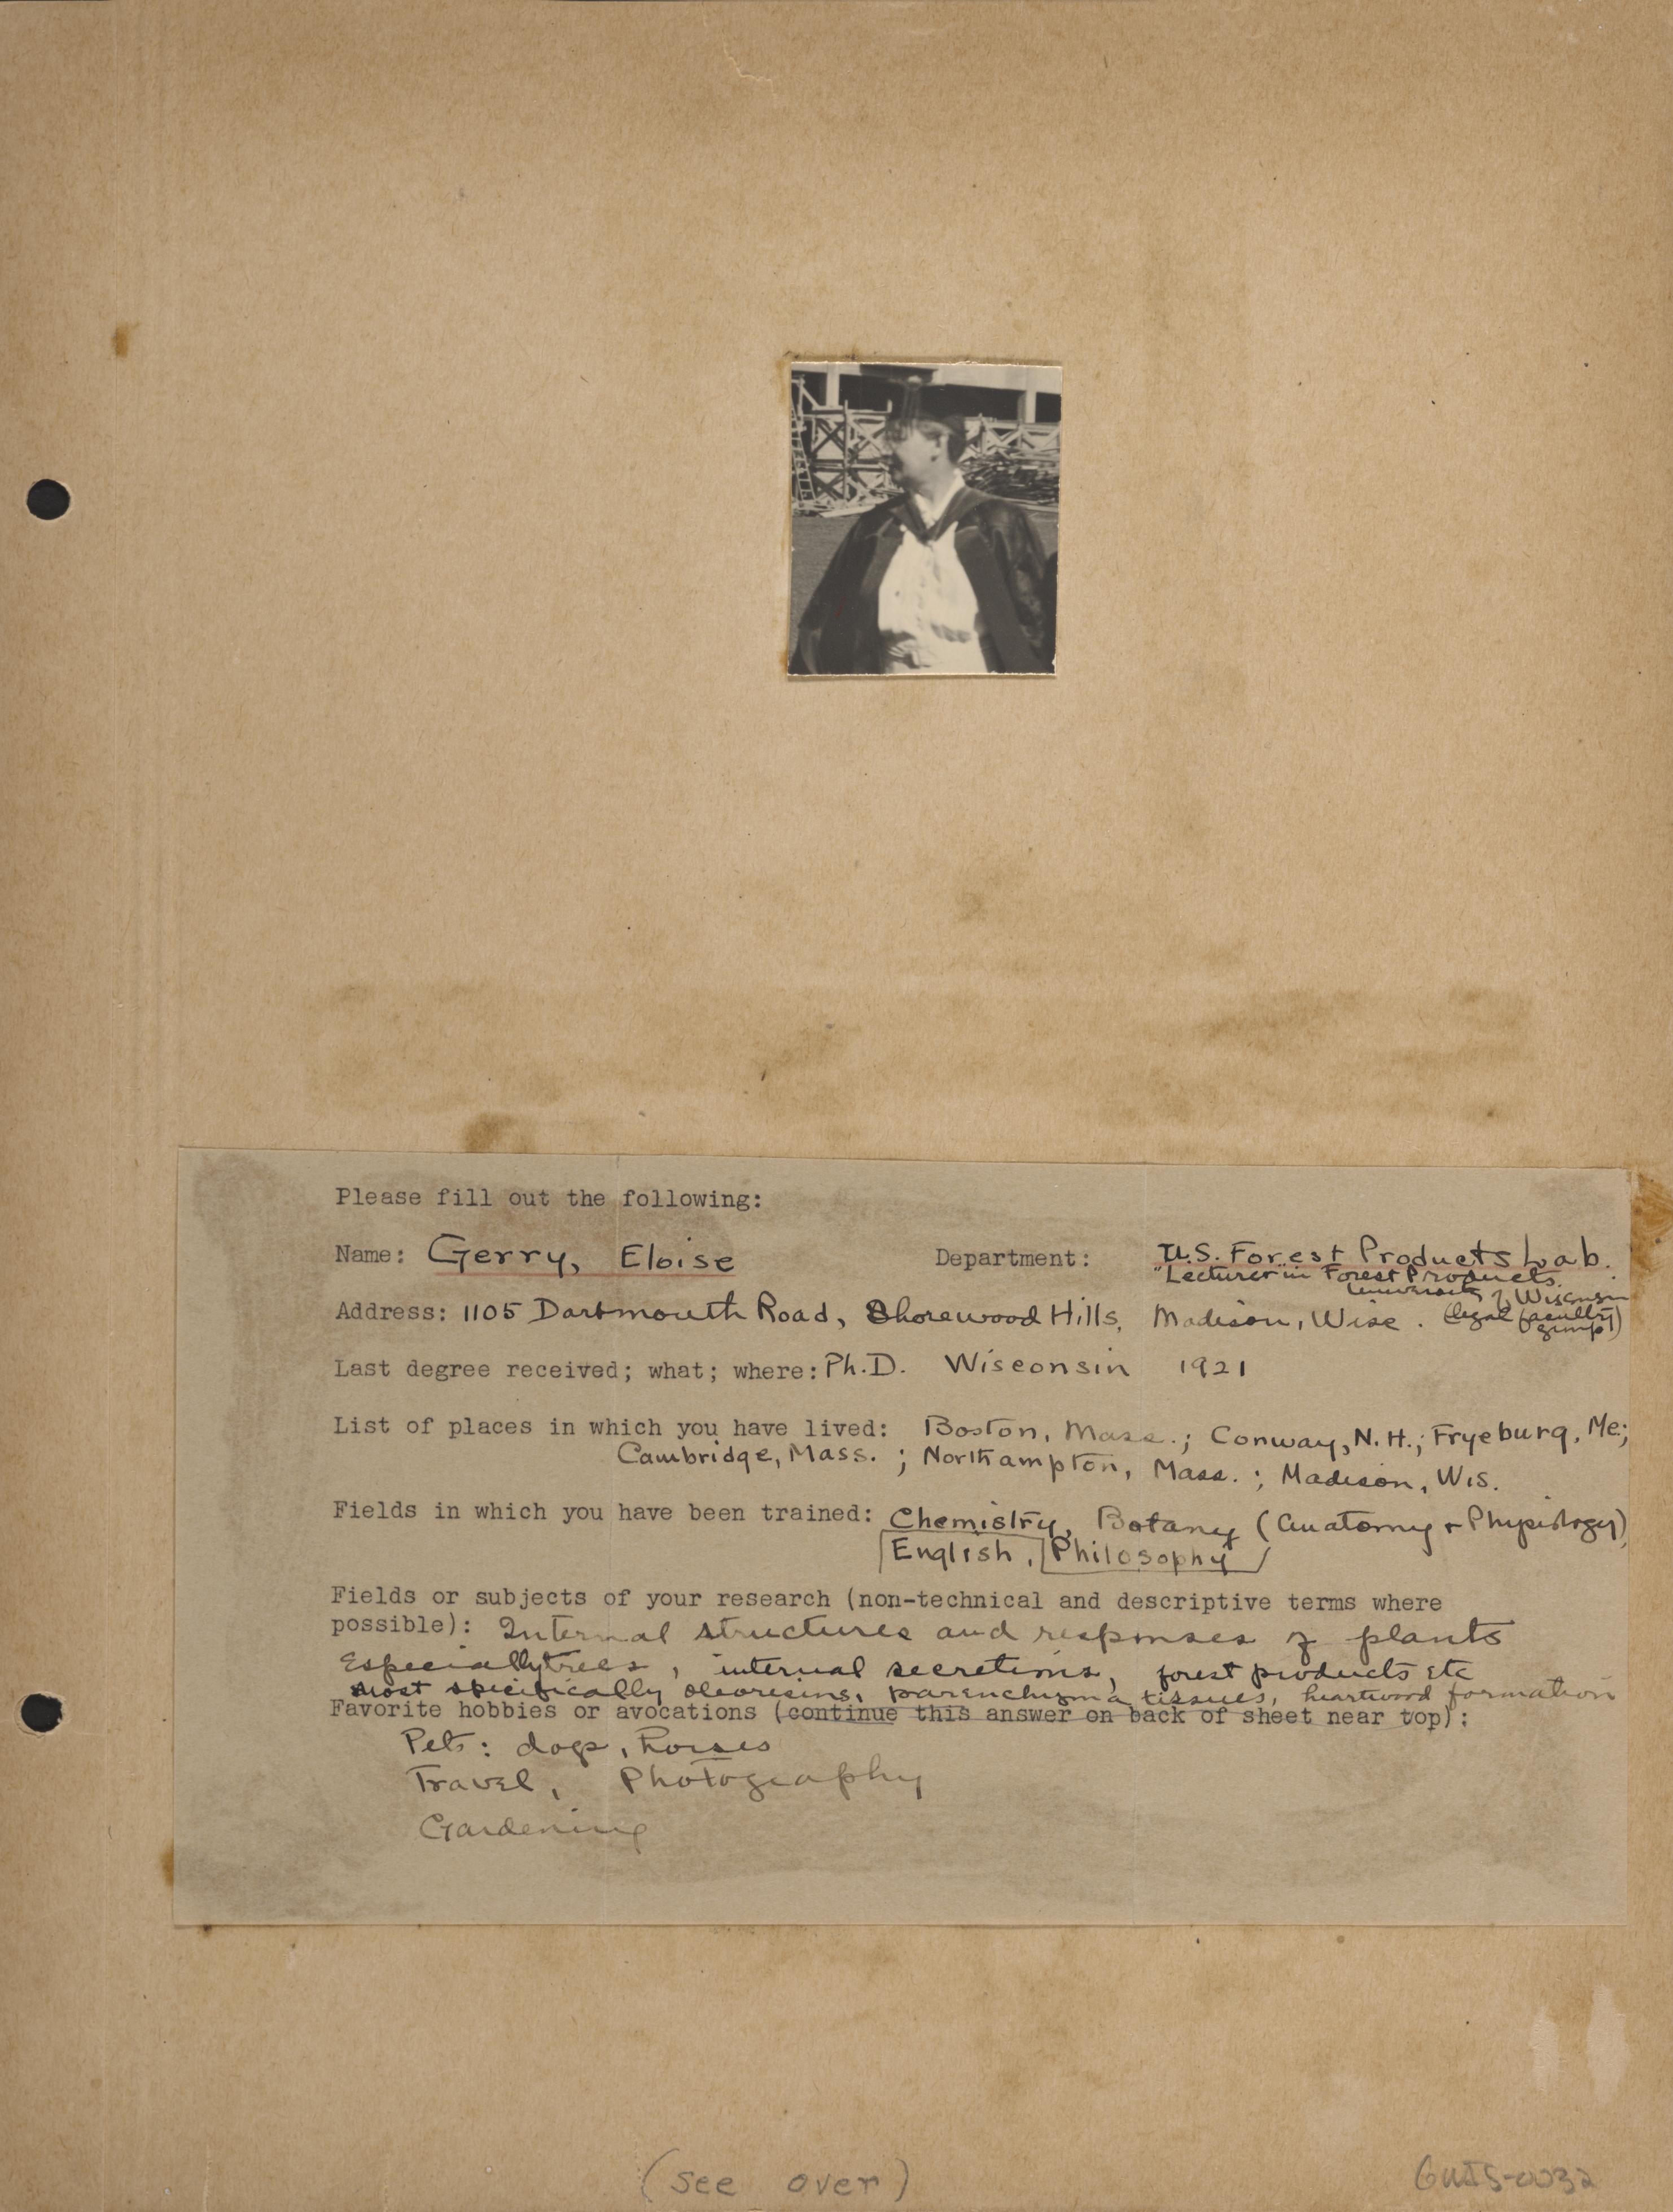 Please fill out the following:
Name: Gerry, Eloise Department: U.S. Forest Products Lab.
"Lecturer" in Forest Products.
University of Wisconsin
Address: 1105 Dartmouth Road, Shorewood Hills, Madison, Wisc. (legal faculty
Last degree received; what; where: Ph.D. Wisconsin 1921
List of places in which you have lived: Boston, Mass.; Conway, N.H.; Fryeburg, Me;
Cambridge, Mass. ; Northampton, Mass. ; Madison, Wis.
Fields in which you have been trained: Chemistry, Botany (Anatomy + Physiology)
English, Philosophy
Fields or subjects of your research (non-technical and descriptive terms where
possible): Internal structures and responses of plants
Especially trees, internal secretions, forest products etc
Most specifically oleoresins, parenchyma tissues, heartwood formation
Favorite hobbies or avocations (continue this answer on back of sheet near top):
Pets: dogs, horses
Travel, Photography
Gardening
(see over)